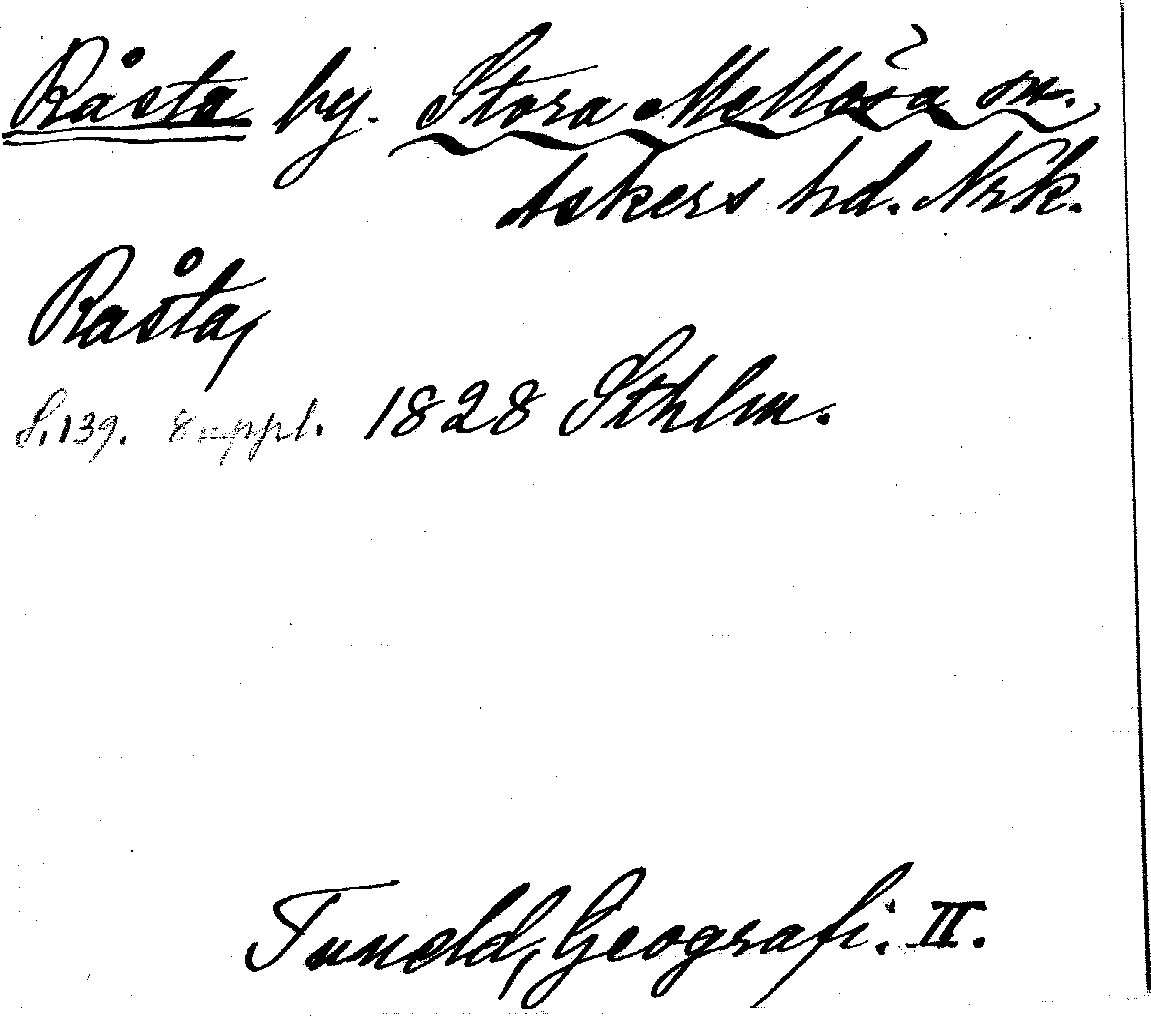 Råsta by. Stora Mellösa sn.
Askers hd. Nrk.
Råsta,
S. 139. Suppl. 1828 Sthlm.
Tuneld, Geografi. II.